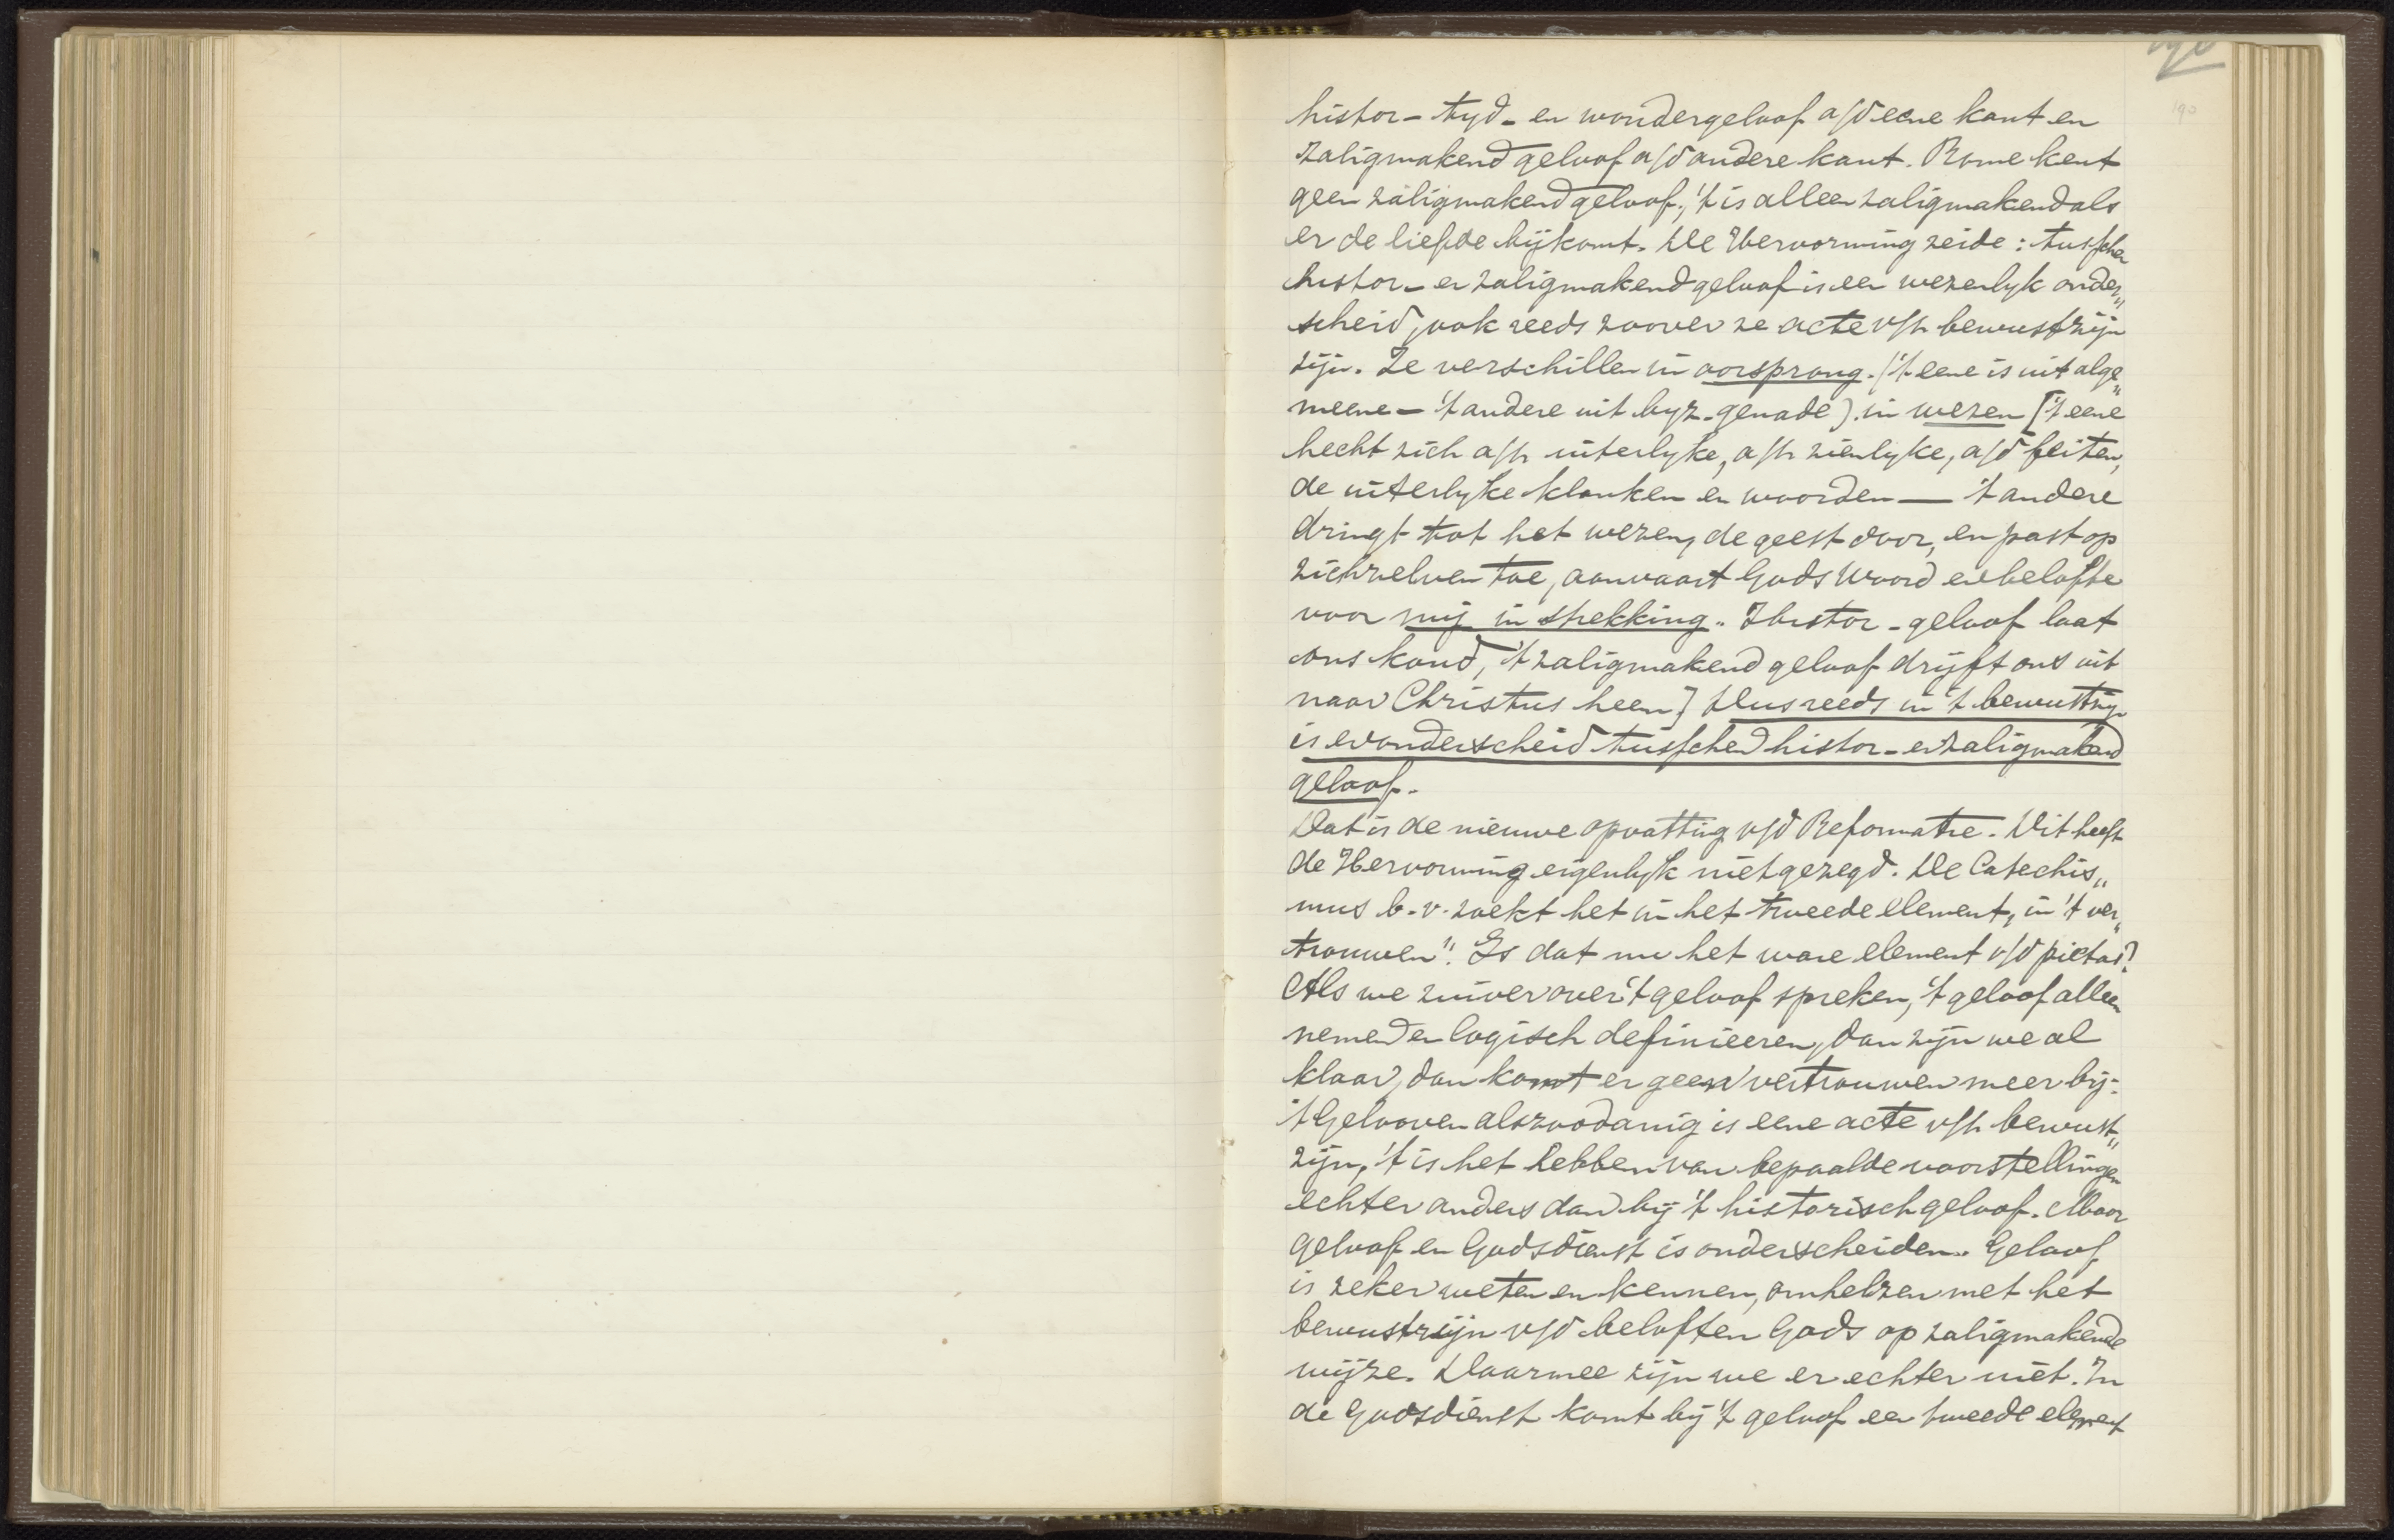 190
190
histor- tyd- en wondergeloof a/d eene kant en
zaligmakend geloof a/d andere kant. Rome kent
geen zaligmakend geloof, 't is alleen zaligmakend als
er de liefde bijkomt. De Hervorming zeide: tusschen
histor- en zaligmakend geloof is een wezenlyk onder„
scheid, ook reeds zoover ze acte v/h bewustzijn
zijn. Ze verschillen in oorsprong. ('t eene is uit alge„
meene- 't andere uit byz. genade) in wezen ['t eene
hecht zich a/h uiterlyke, a/h zienlyke, a/d feiten,
de uiterlyke klanken en woorden — 't andere
dringt tot het wezen, de geest door, en past op
zichzelven toe, aanvaart Gods Woord en belofte
voor mij in strekking. Histor- geloof laat
ons koud, 't zaligmakend geloof drijft ons uit
naar Christus heen] Dus reeds in 't bewustzijn
is er onderscheid tusschen histor- en zaligmakend
geloof.
Dat is de nieuwe opvatting v/d Reformatie. Dit heeft
de Hervorming eigenlyk niet gezegd. De Catechis„
mus b.v. zoekt het in het tweede element, in 't ver„
trouwen". Is dat nu het ware element v/d pietas?
Als we zuiver over 't geloof spreken, 't geloof alleen
nemen en logisch definieeren, dan zijn we al
klaar, dan komt er geen vertrouwen meer bij.
't Gelooven als zoodanig is eene acte v/h bewust„
zijn, 't is het hebben van bepaalde voorstellingen
echter anders dan bij 't historisch geloof. Maar
geloof en Godsdienst is onderscheiden. Geloof
is zeker weten en kennen, omhelzen met het
bewustzijn v/d beloften Gods op zaligmakende
wijze. Daarmee zijn we er echter niet. In
de Godsdienst komt bij 't geloof een tweede element